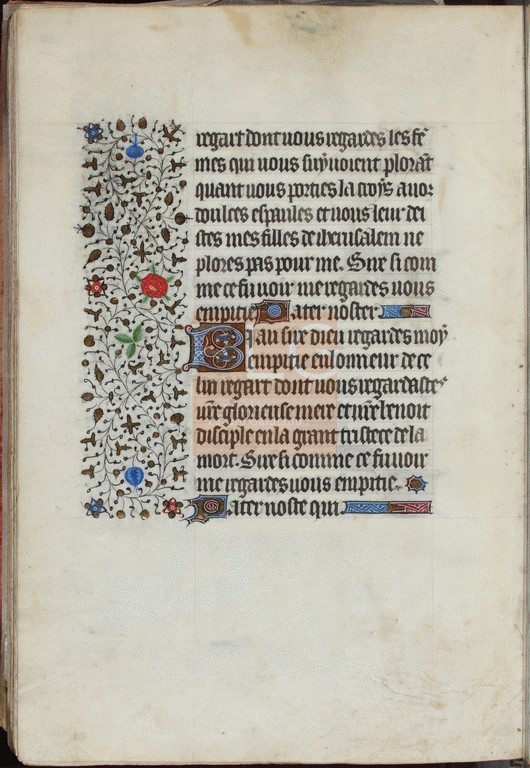 regart dont vous regardes les fē
mes qui vous suyvoient plorāt
quant vous porties la croys a vor
doulces espaules et vous leur dei
stes mes filles de iherusalem ne
plores pas pour me. Sire si com
me ce fu voir me regardes vous
en pitie Pater noster
Biau sire dieu regardes moy
en pitie en lonneur de ce
luy regart dont vous regardastes
vr̄e glorieuse mere et vr̄e benoit
disciple en la grant tristece de la
mort. Sire si comme ce fu voir
me regardes vous en pitie.
Pater noste qui.